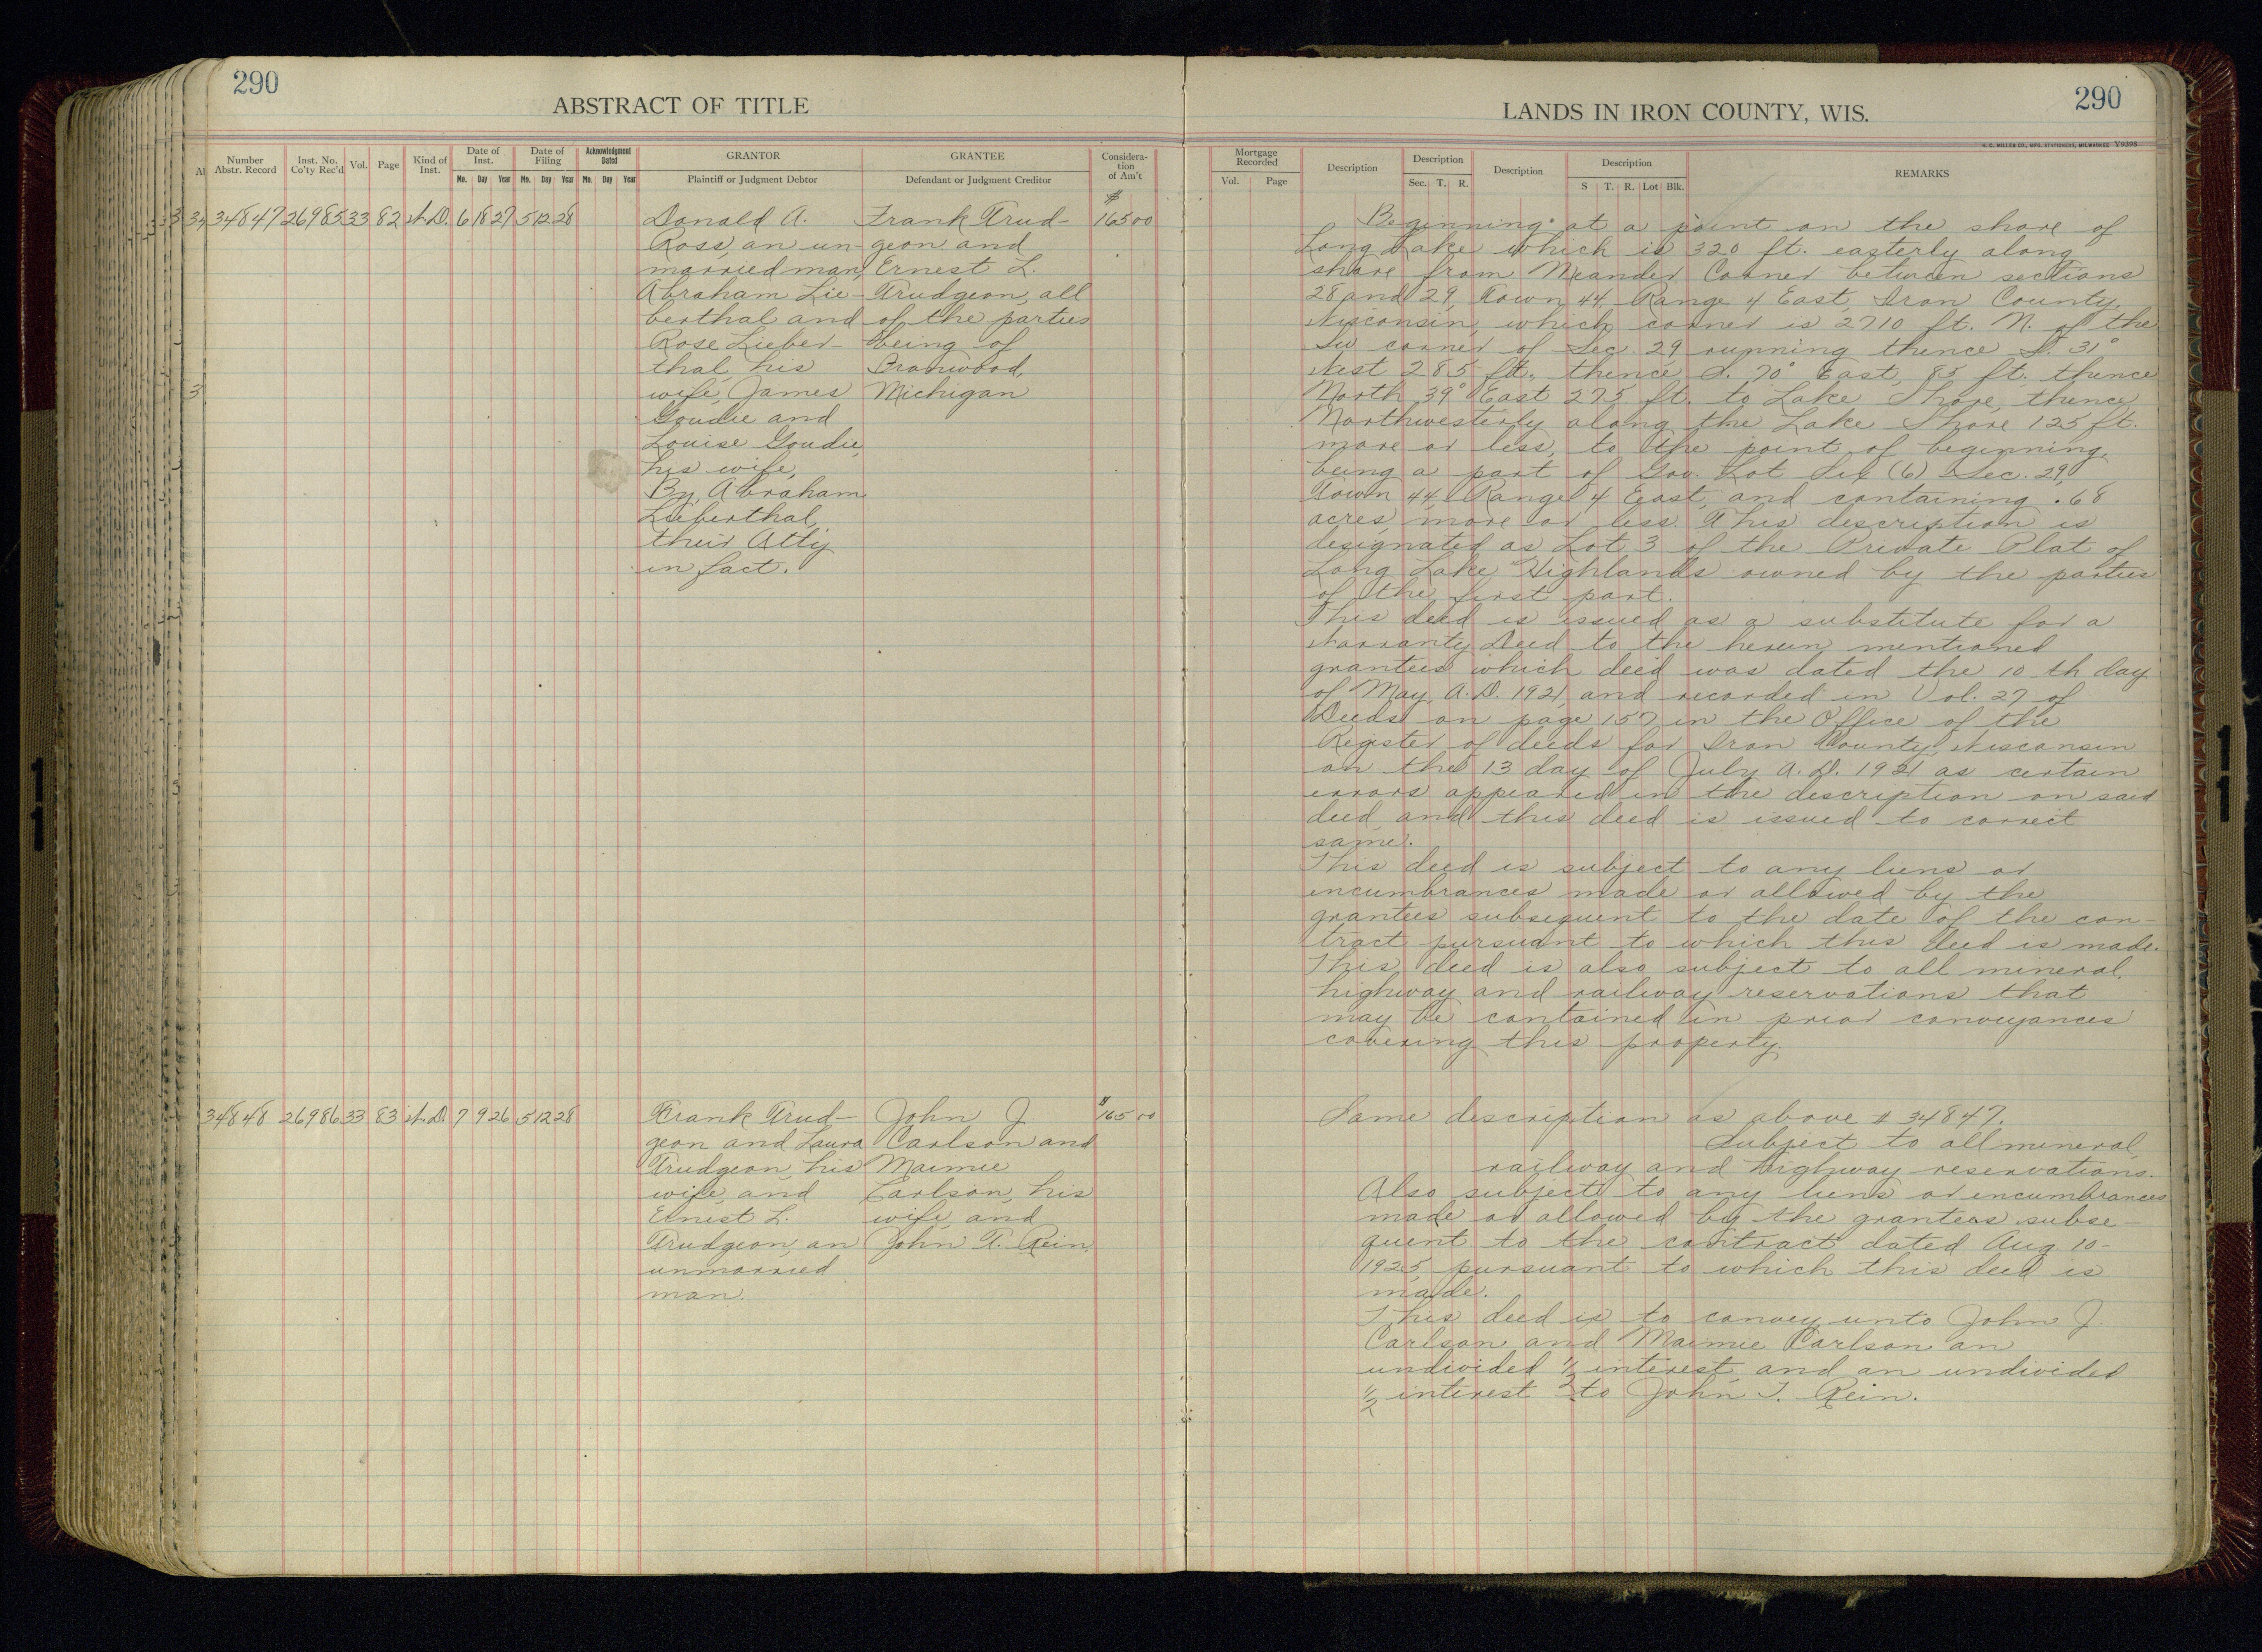 290
ABSTRACT OF TITLE
Number Abstr. Record
Inst. No. Co'ty Rec'd
Vol.
Page
Kind of Inst.
Date of Inst.
Mo. Day Year
Date of Filing
Mo. Day Year
Acknowledgment Dated
Mo. Day Year
GRANTOR
Plaintiff or Judgment Debtor
GRANTEE
Defendant or Judgment Creditor
Considera-
tion
of Am't
34847 26985 33 82 W.D. 6 18 27 5 12 28
Donald A.
Ross, an un-
married man,
Abraham Lie-
berthal and
Rose Lieber-
thal, his
wife, James
Goudie and
Louise Goudie,
his wife,
By, Abraham
Lieberthal,
their Atty
in fact.
Frank Trud-
geon and
Ernest L.
Trudgeon, all
of the parties
being of
Ironwood,
Michigan
$
165 00
34848 26986 33 83 W.D. 7 9 26 5 12 28
Frank Trud-
geon and Laura
Trudgeon, his
wife, and
Ernest L.
Trudgeon, an
unmarried
man.
John J.
Carlson and
Maimie
Carlson, his
wife, and
John T. Rein.
$165 00
LANDS IN IRON COUNTY, WIS.
290
H. C. MILLER CO., MFG. STATIONERS, MILWAUKEE Y9398
Mortgage Recorded
Vol. Page
Description
Description
Sec. T. R.
Description
Description
S T. R. Lot Blk.
REMARKS
Beginning at a point on the shore of
Long Lake which is 320 ft. easterly along
shore from Meander Corner between sections
28 and 29, Town 44, Range 4 East, Iron County,
Wisconsin, which corner is 2710 ft. N. of the
SW corner of Sec. 29 running thence S. 31°
West 285 ft., thence S. 70° East, 85 ft., thence
North 39° East 275 ft. to Lake Shore, thence
Northwesterly along the Lake Shore 125 ft.
more or less, to the point of beginning,
being a part of Gov. Lot Six (6) Sec. 29,
Town 44, Range 4 East, and containing .68
acres, more or less. This description is
designated as Lot 3 of the Private Plat of
Long Lake Highlands owned by the parties
of the first part.
This deed is issued as a substitute for a
Warranty Deed to the herein mentioned
grantees which deed was dated the 10 th day
of May, A.D. 1921, and recorded in Vol. 27 of
Deeds on page 157 in the Office of the
Register of deeds for Iron County, Wisconsin
on the 13 day of July A.D. 1921 as certain
errors appeared in the description on said
deed, and this deed is issued to correct
same.
This deed is subject to any liens or
incumbrances made or allowed by the
grantees subsequent to the date of the con-
tract pursuant to which this deed is made.
This deed is also subject to all mineral,
highway and railway reservations that
may be contained in prior conveyances
covering this property.
Same description as above # 34847.
Subject to all mineral,
railway and highway reservations.
Also subject to any liens or incumbrances
made or allowed by the grantees subse-
quent to the contract dated Aug. 10-
1925, pursuant to which this deed is
made.
This deed is to convey unto John J.
Carlson and Maimie Carlson an
undivided 1/2 interest, and an undivided
1/2 interest to John T. Rein.